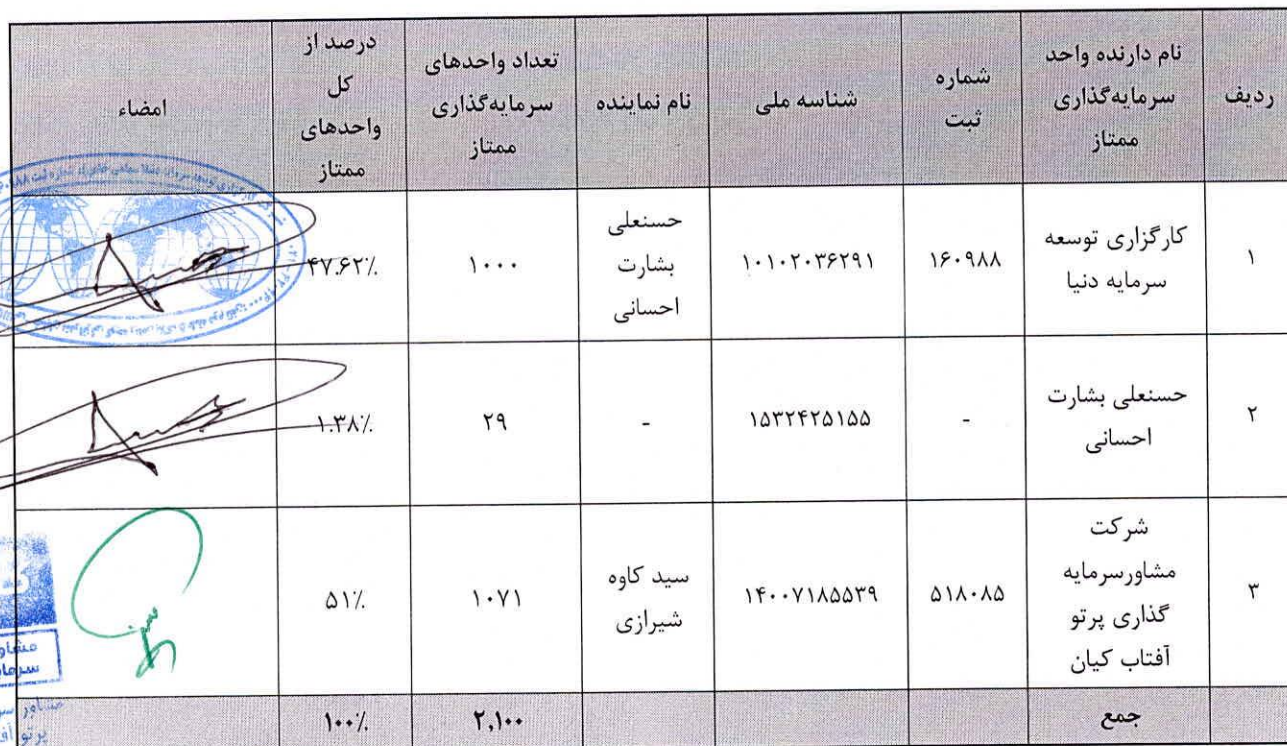 ردیف
نام دارنده واحد
سرمایه‌گذاری
ممتاز
شماره
ثبت
شناسه ملی
نام نماینده
تعداد واحدهای
سرمایه‌گذاری
ممتاز
درصد از
کل
واحدهای
ممتاز
امضاء
۱
کارگزاری توسعه
سرمایه دنیا
۱۶۰۹۸۸
۱۰۱۰۲۰۳۶۲۹۱
حسنعلی
بشارت
احسانی
۱۰۰۰
۴۷.۶۲٪
۲
حسنعلی بشارت
احسانی
-
۱۵۳۲۴۲۵۱۵۵
-
۲۹
۱.۳۸٪
۳
شرکت
مشاورسرمایه
گذاری پرتو
آفتاب کیان
۵۱۸۰۸۵
۱۴۰۰۷۱۸۵۵۳۹
سید کاوه
شیرازی
۱۰۷۱
۵۱٪
جمع
۲,۱۰۰
۱۰۰٪